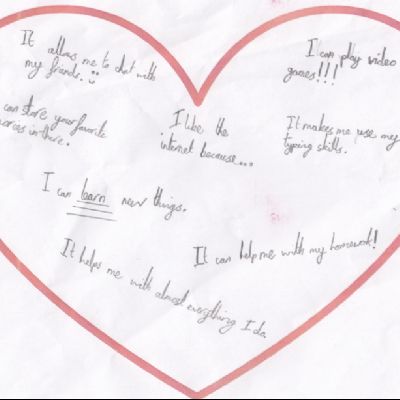 It allows me to chat with
my friends.
I can play video
games!!!
can store your favorite
in there.
I like the
internet because...
It makes me use my
typing skills.
I can learn new things.
It can help me with my homework!
It helps me with almost everything I do.